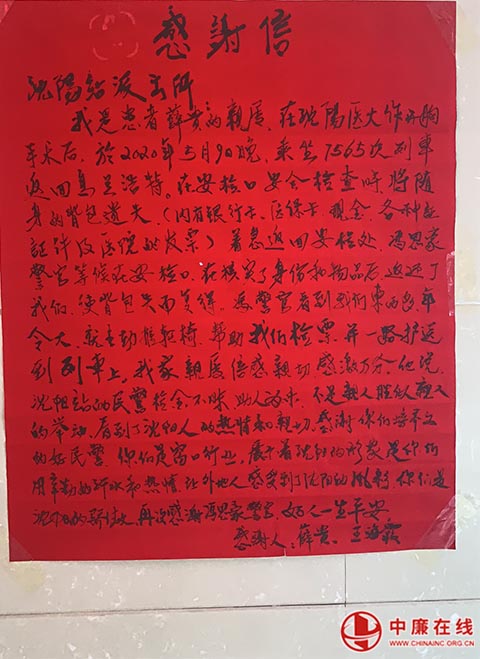 感謝信
沈陽站派出所
我是患者薛贵的親属、在沈陽医大作开胸
手术后、於2020年5月9日晚,乘坐T565次列車
返回烏兰浩特。在安检口安全检查時,將随
身的背包遺失、(内有银行卡、医保卡、现金、各种
証件及医院的发票)着急返回安检处,冯思豪
警官等候在安检口、在核实了身份和物品后,返还了
我们,使背包失而复得。冯警官看到我们東西多,年
令大、就主动推轮椅,帮助我们检票并一路护送
到列車上,我家親属倍感親切感激万分、他
沈阳站的民警拾金不昧,助人为乐、不是親人胜似親人
的举动,看到了沈阳人的热情和親切,感谢你们培养出
的好民警,你们是窗口行业,展示着沈阳的形象是你们
用辛勤的汗水和热情,让外地人感受到了沈阳的 你们是
沈阳的 再次感谢冯思豪警官 好人一生平安
感谢人:薛贵、王海霞
中廉在线
WWW.CHINAINC.ORG.CN